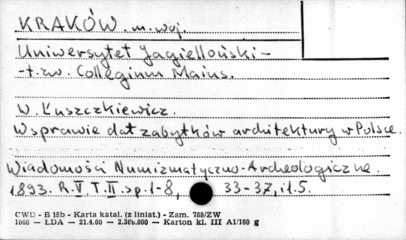 KRAKÓW. m. woj.
Uniwersytet Jagielloński -
- t. zw. Collegium Maius.
W. Łuszczkiewicz.
W sprawie dat zabytków architektury w Polsce.
Wiadomości Numizmatyczno-Archeologiczne.
1893. R.V. T.II. sp. 1-8, 33-37, il. 5.
CWD - B 15b - Karta katal. (z liniat.) - Zam. 788/ZW
1960 — LDA — 21.4.60 — 2.300.000 — Karton kl. III A1/160 g